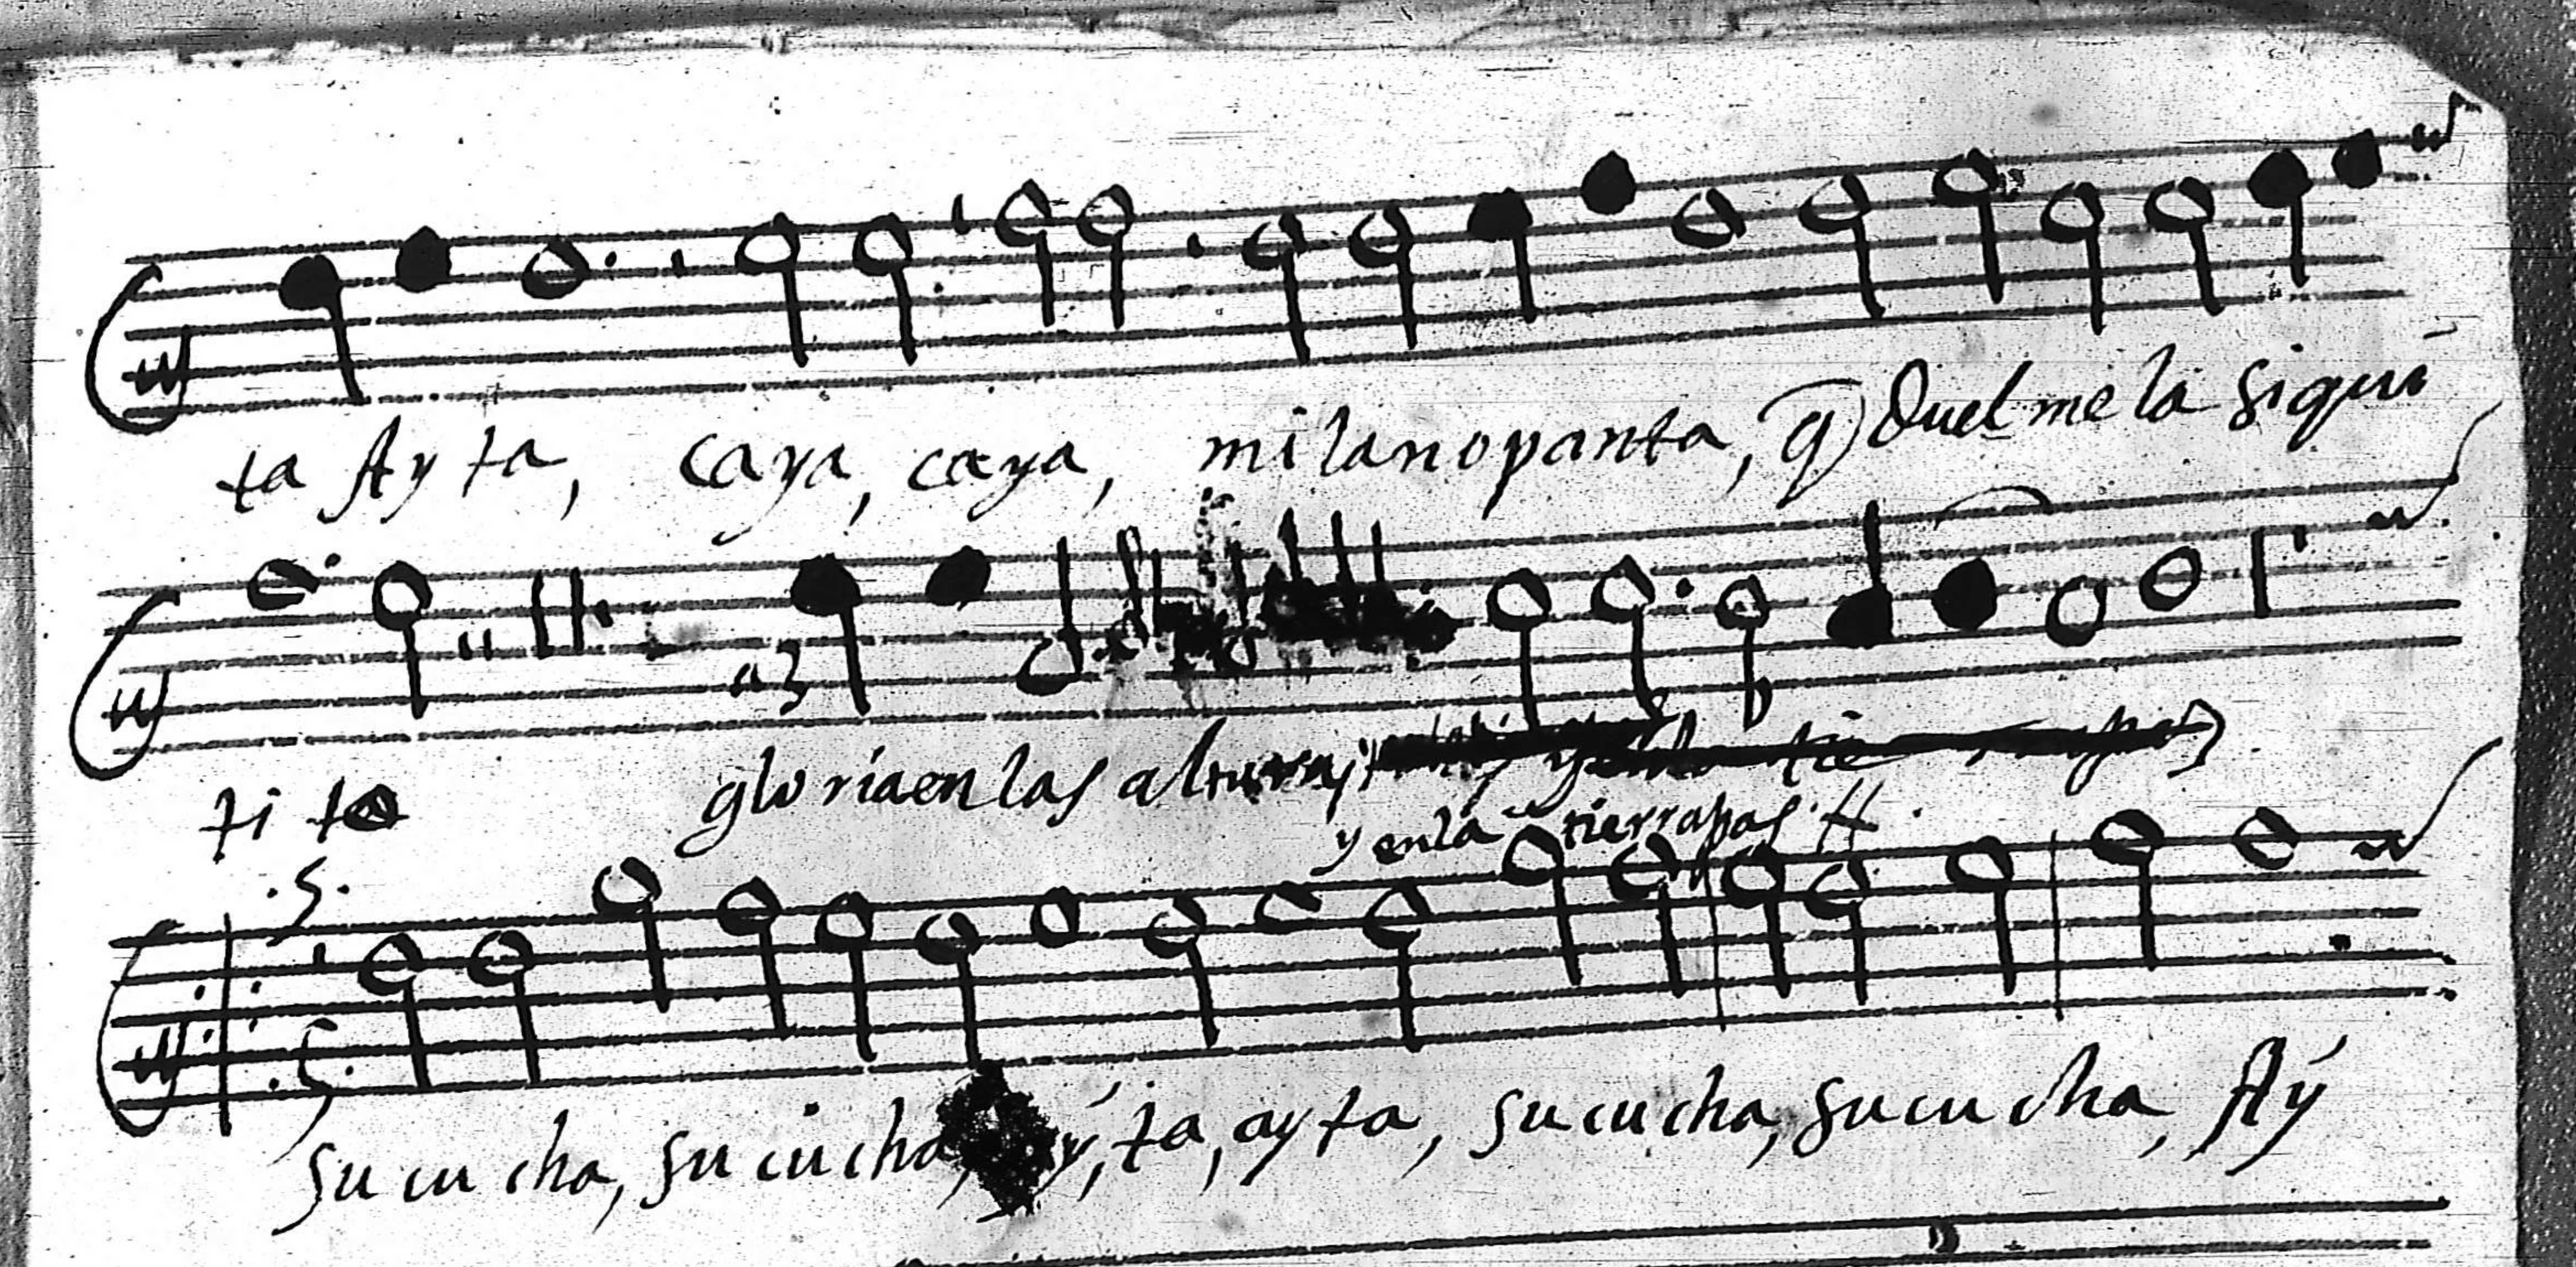 ta Ay ta, caya, caya, mi lanopanta, q Duel me la siqui
ti ta gloria en las alturas,
y en la tierra pas.
su cu cha, su cu cha, ta, ay ta, su cu cha, su cu cha, Aý